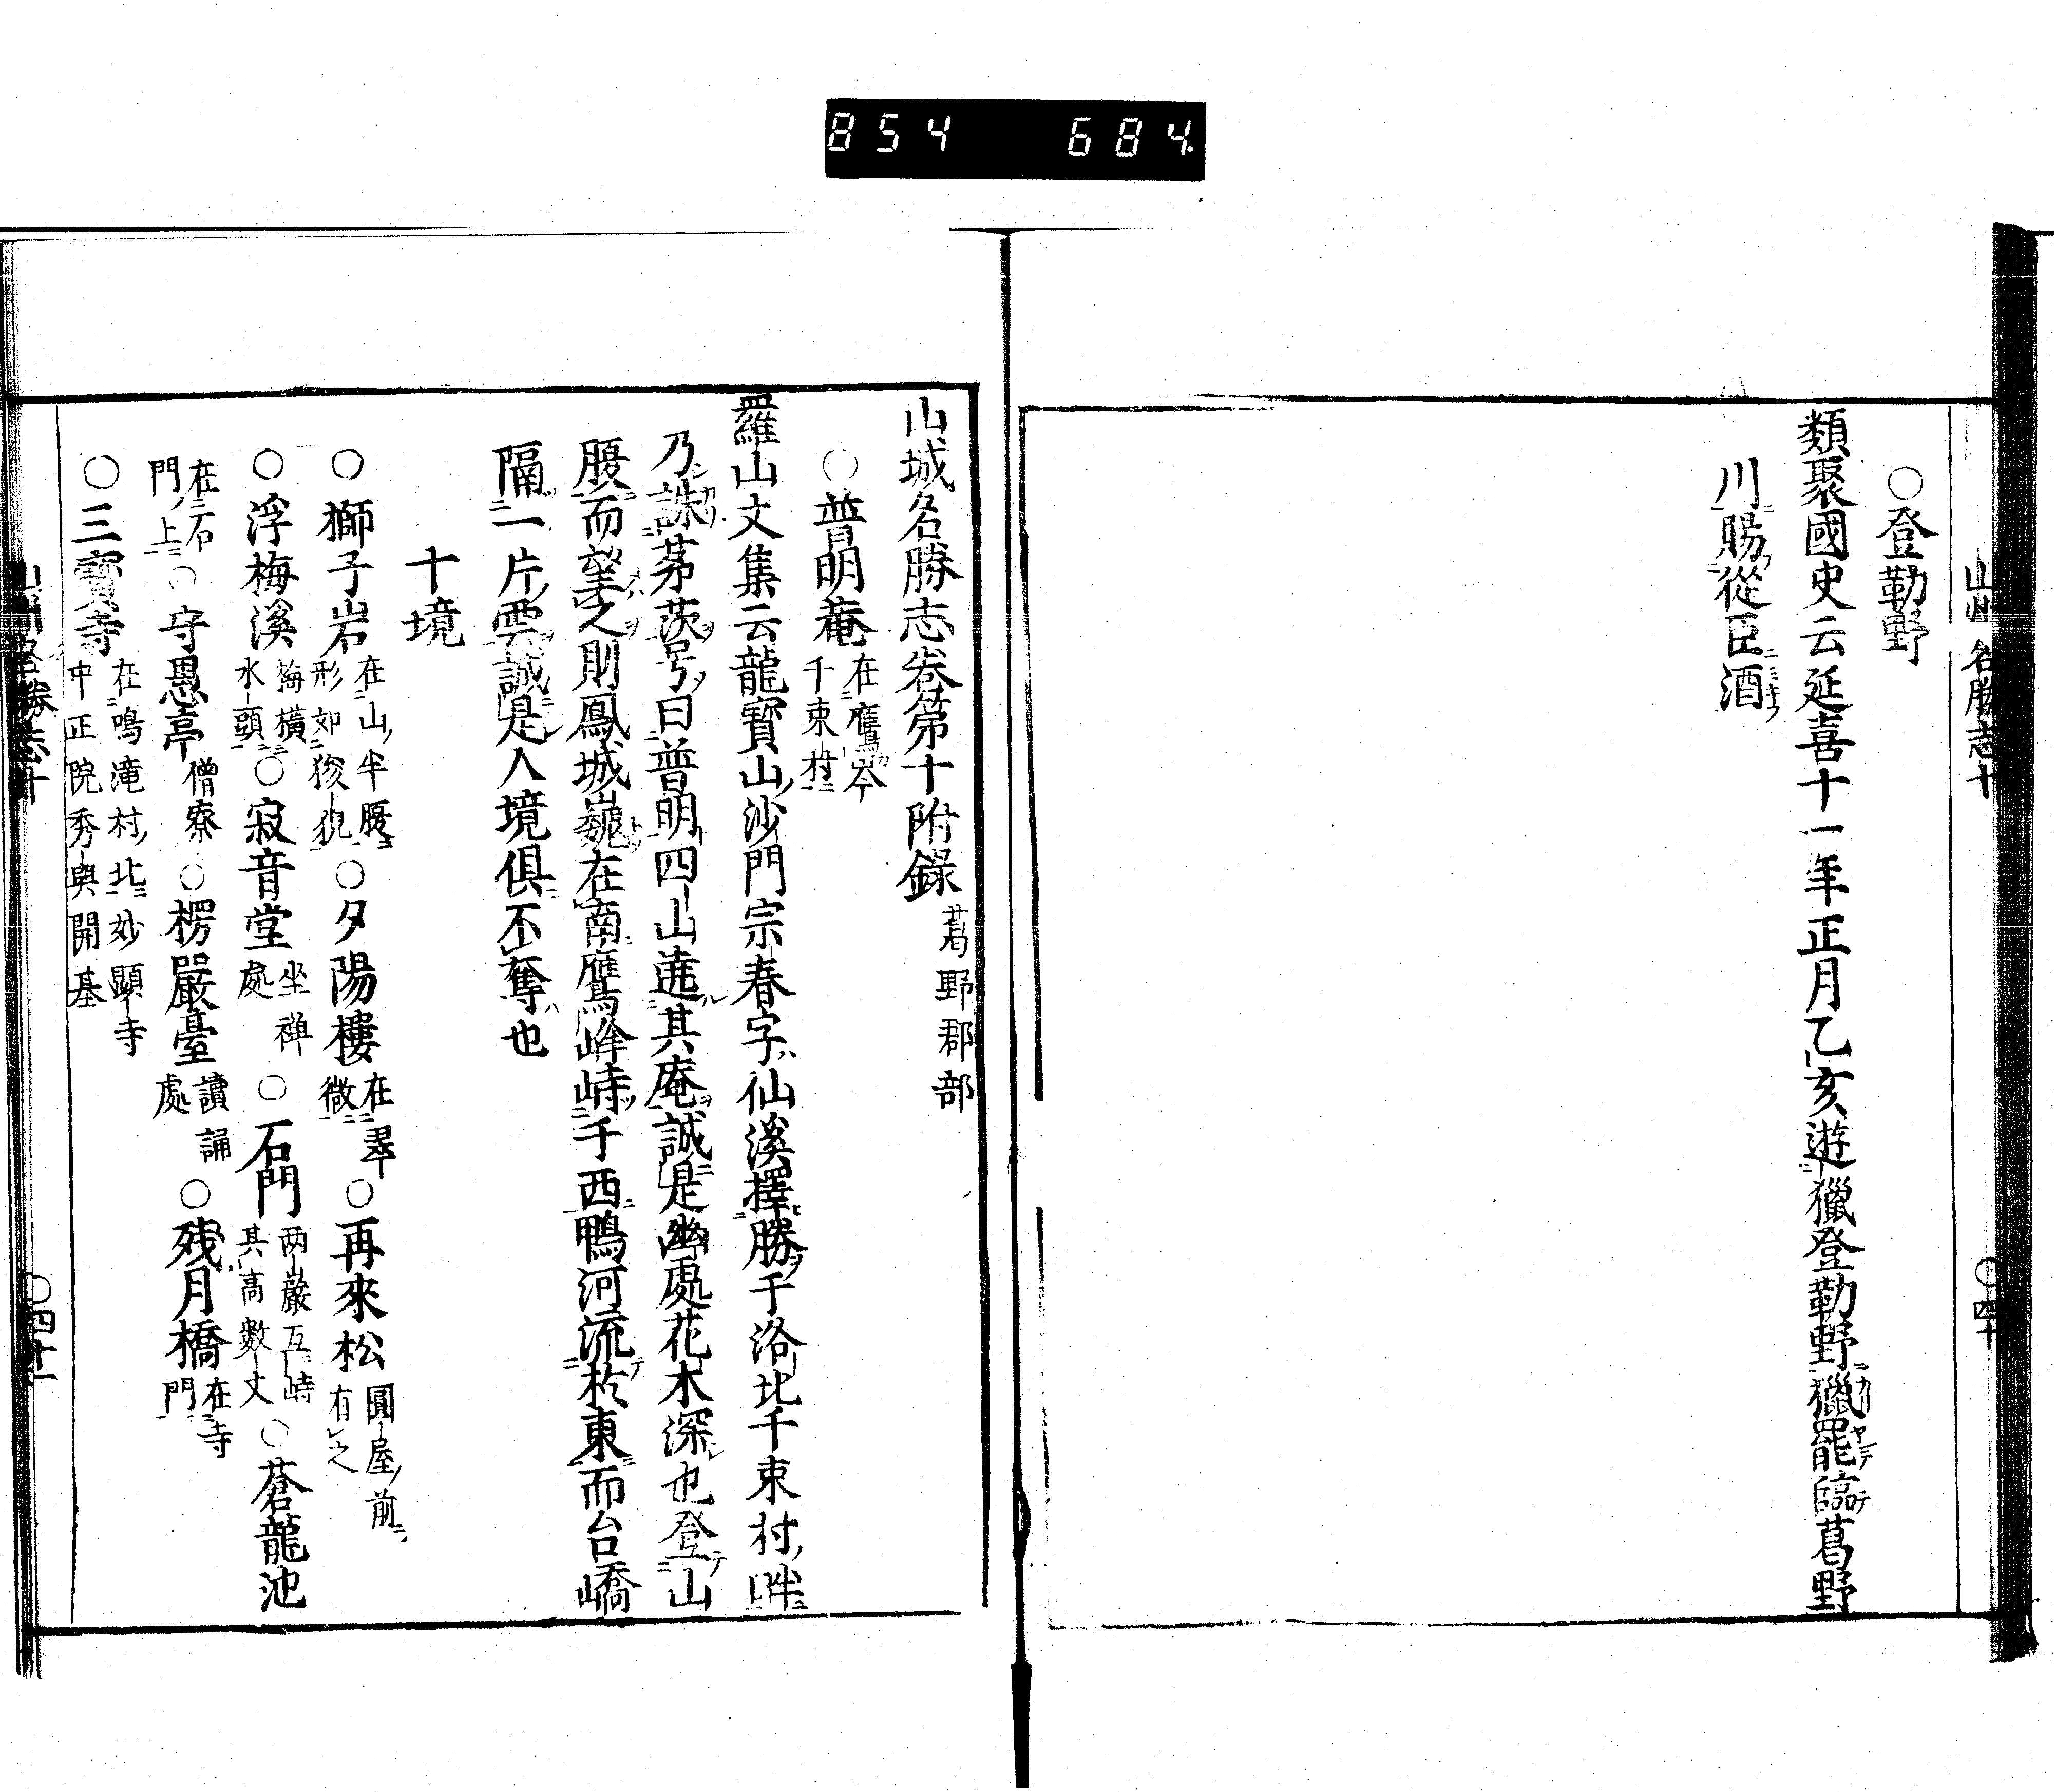 854 684
山州名勝志十 ○四十
○登勒野
類聚國史云延喜十一年正月乙亥遊獵登勒野獵罷臨葛野
川賜從臣酒
山城名勝志卷第十附錄 葛野郡部
○普明菴 在鷹岑
千束村
羅山文集云龍寶山沙門宗春字仙溪擇勝于洛北千束村畔
乃誅茅茨号曰普明四山遶其庵誠是幽處花木深也登山
腰而望之則鳳城巍在南鷹峰峙于西鴨河流於東而台嶠
隔一片雲誠是人境俱不奪也
十境
○獅子岩 在山半腰
形如狻猊 ○夕陽樓 在翠
微 ○再來松 圓屋前
有之
○浮梅溪 梅橫
水頭 ○寂音堂 坐禅
處 ○石門 两巖互峙
其高數丈 ○蒼龍池
在石
門上 ○守愚亭 僧寮 ○楞嚴臺 讀誦
處 ○残月橋 在寺
門
○三寶寺 在鳴滝村北妙顯寺
中正院秀典開基
山州名勝志十 ○四十一